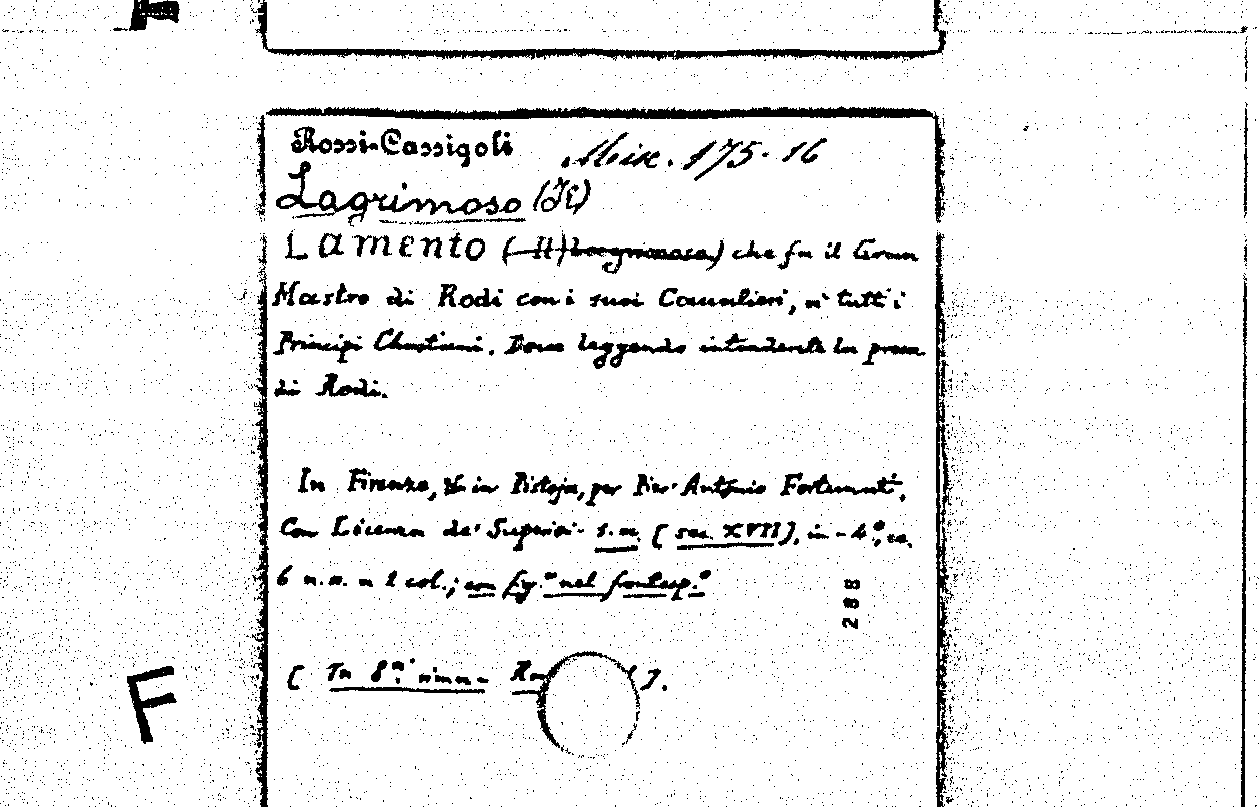 Rossi-Cassigoli Misc. 175. 16
Lagrimoso (Il)
Lamento (Il) Lagrimoso) che fa il Gran
Mastro di Rodi con i suoi Cavalieri, a' tutti i
Principi Christiani. Dove leggendo intenderete la presa
di Rodi.
In Firenze, & in Pistoja, per Pier' Antonio Fortunati,
Con Licenza de' Superiori s.a. [sec. XVII], in-4°, cc.
6 n.n. a 2 col.; con fig.ª nel frontesp.º
288
[In 8.ª rima-
F